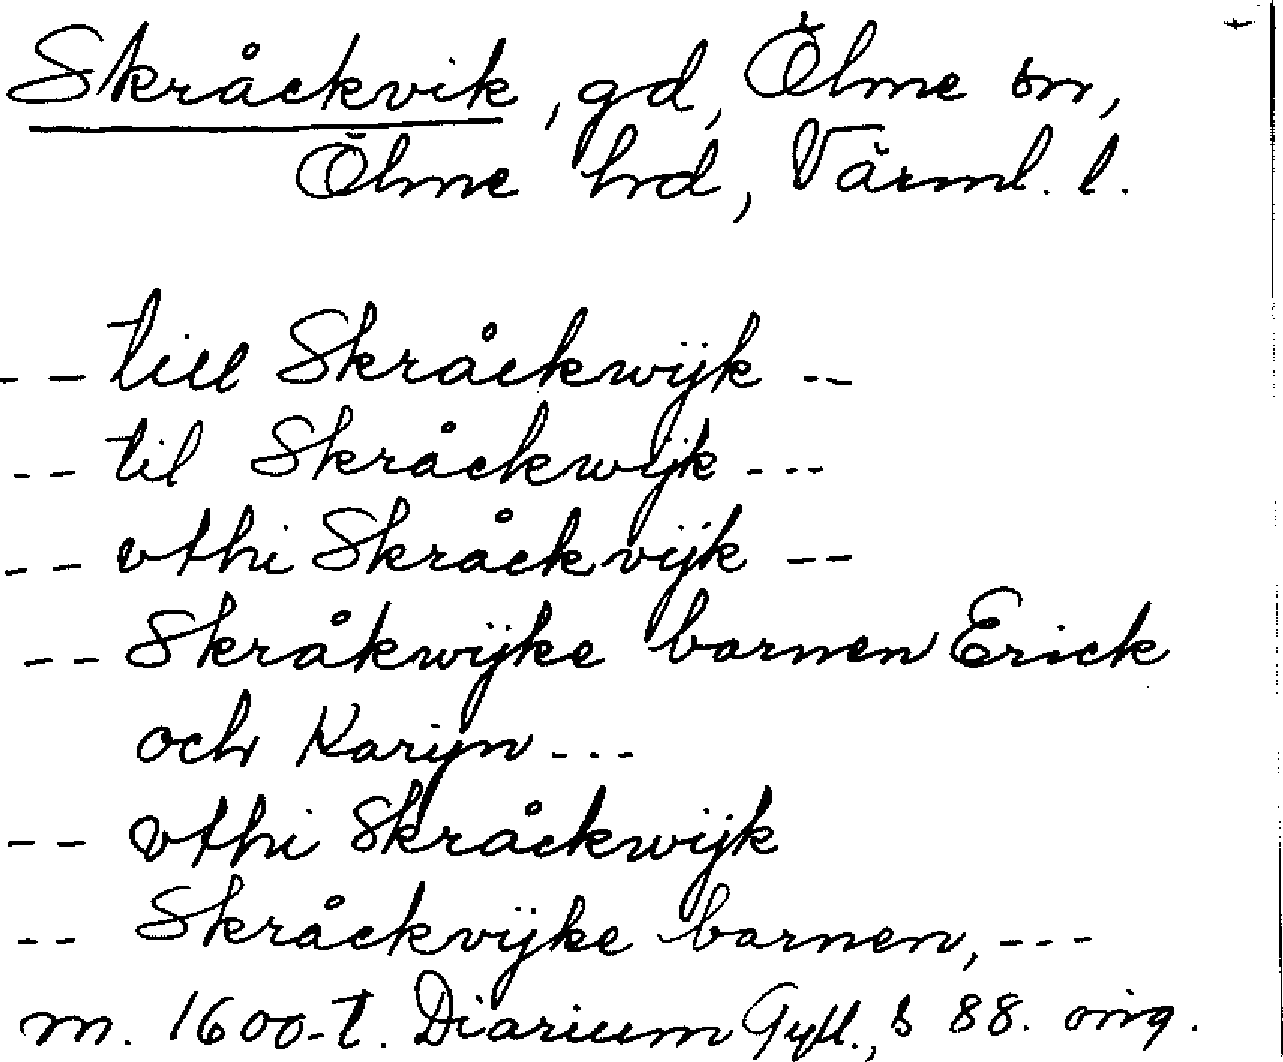 Skråckvik, gd, Ölme sn,
Ölme hrd, Värml. l.
-- till Skråckwijk --
-- til Skråckwijk ---
-- vthi Skråckvijk --
-- Skråkwijke barnen Erick
och Karijn ---
-- vthi Skråckwijk
-- Skråckvijke barnen, ---
m. 1600-t. Diarium Gyll., s 88. orig.